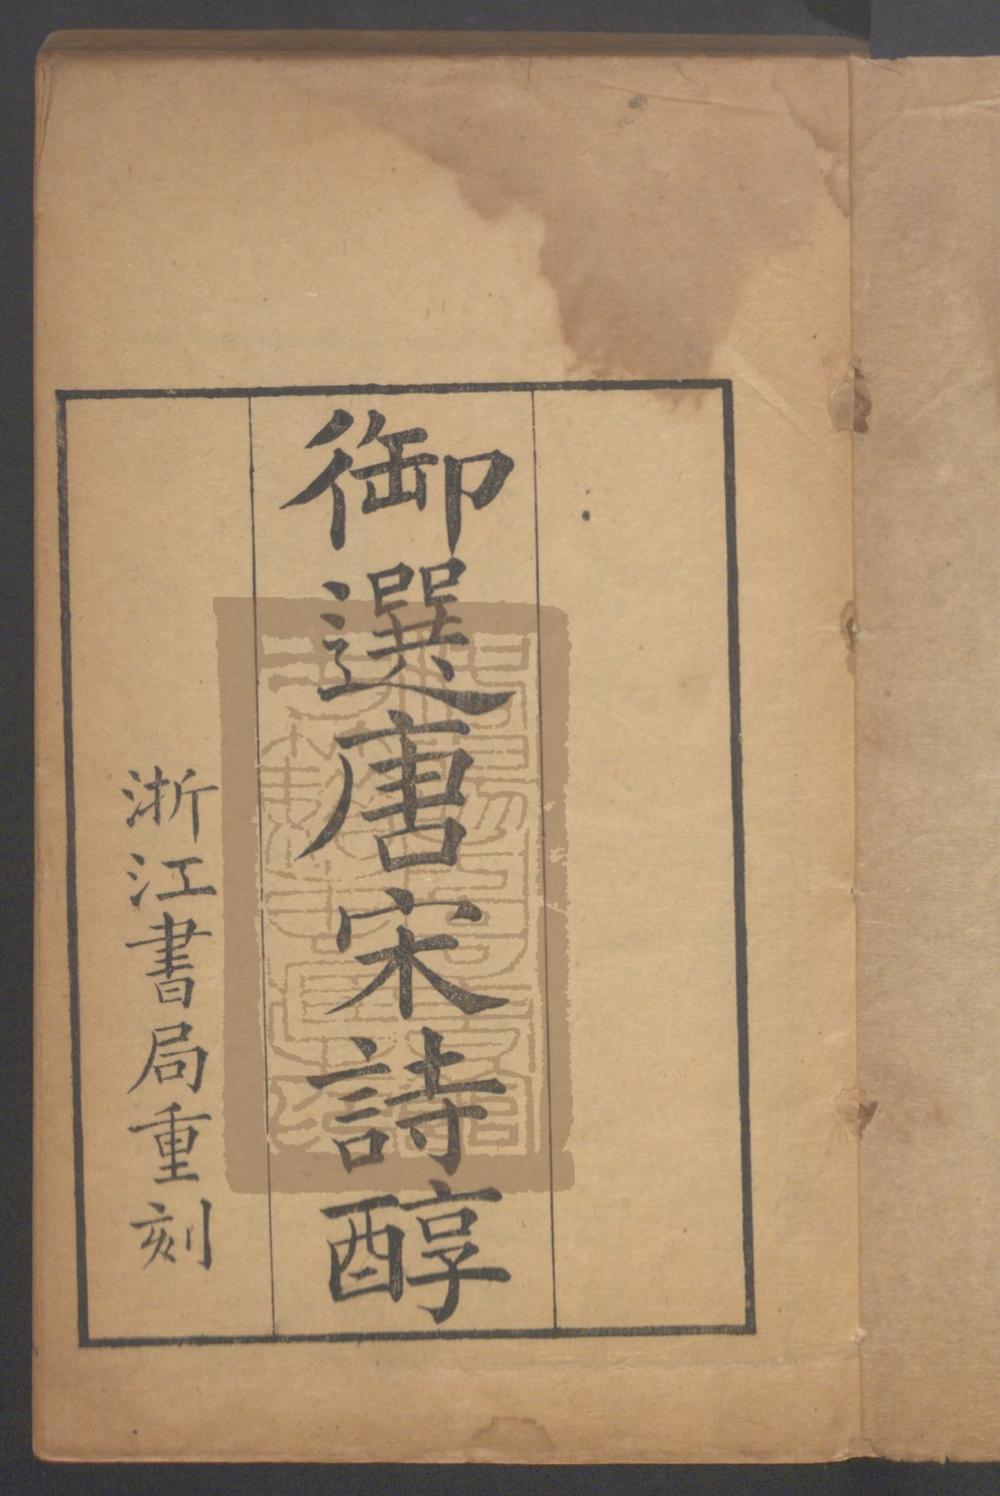 御選唐宋詩醇
浙江書局重刻